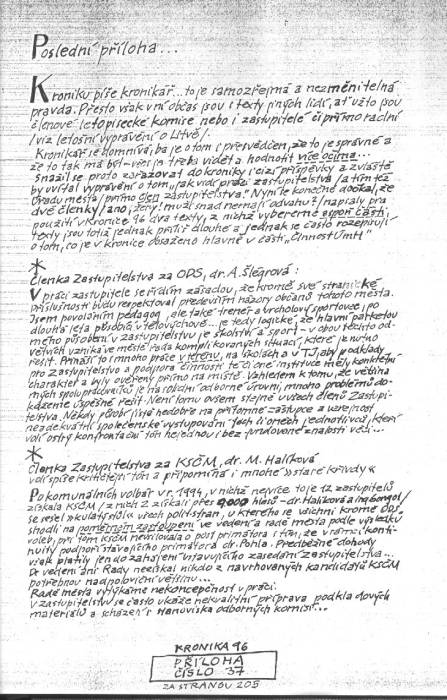 Poslední příloha...
Kroniku píše kronikář... to je samozřejmá a nezměnitelná
pravda. Přesto však v ní občas jsou i texty jiných lidí, ať už to jsou
členové letopisecké komise nebo i zastupitelé či přímo radní
/viz letošní vyprávění o Litvě/.
Kronikář se domnívá, ba je o tom i přesvědčen, že to je správné a
že to tak má být - věci je třeba vidět a hodnotit více očima...
Snažil se proto zařazovat do kroniky i cizí příspěvky a zvláště
by uvítal vyprávění o tom, jak vidí práci zastupitelstva /a tím též
Úřadu města/ přímo člen zastupitelstva. Nyní se konečně dočkal, že
dvě členky /ano, ženy! muži snad nemají odvahu?/ napsaly pro
použití v Kronice 96 dva texty, z nichž vybereme aspoň části,
texty jsou totiž jednak příliš dlouhé a jednak se často rozepisují
o tom, co je v kronice obsaženo hlavně v části „Činnost ÚmH“
*
Členka Zastupitelstva za ODS, dr. A. Šlégrová:
V práci zastupitele se řídím zásadou, že kromě své stranické
příslušnosti budu respektovat především názory občanů tohoto města.
Jsem povoláním pedagog, ale také trener a vrcholový sportovec, po
dlouhá léta působím v tělovýchově... je tedy logické, že hlavní parketou
mého působení v zastupitelstvu je školství a sport - v obou těchto od-
větvích vzniká ve městě řada komplikovaných situací, které je nutno
řešit. Přináší to i mnoho práce v terénu, na školách a v TJ, aby podklady
pro Zastupitelstvo a podpora činnosti té či oné instituce měly konkrétní
charakter a byly ověřeny přímo na místě. Vzhledem k tomu, že většina
mých spolupracovníků je na solidní odborné úrovni, mnoho problémů do-
kážeme úspěšně řešit. Není tomu ovšem stejně u všech členů Zastupi-
telstva. Někdy působí jistě nedobře na přítomné zástupce a veřejnost
neadekvátní společenské vystupování těch či oněch jednotlivců, kteří
volí ostrý konfrontační tón nejednou i bez fundované znalosti věci...
*
Členka Zastupitelstva za KSČM, dr. M. Halíková
volí spíše kritičtější tón a připomíná i mnohé »staré křivdy«
Po komunálních volbách v r. 1994, v nichž nejvíce to je 12 zastupitelů
získala KSČM /z nich 2 získali přes 9000 hlasů - dr. Halíková a ing. Gongol/
se sešel »kulatý stůl« všech politstran, u kterého se všichni kromě ODS
shodli na poměrném zastoupení ve vedení a radě města podle výsledků
voleb, při tom KSČM neusilovala o post primátora s tím, že v rámci konti-
nuity podpoří stávajícího primátora dr. Pohla. Předběžné dohody
však platily jen do zahájení ustavujícího zasedání Zastupitelstva...
Do vedení ani Rady nezískal nikdo z navrhovaných kandidátů KSČM
potřebnou nadpoloviční většinu...
Radě města vytýkáme nekoncepčnost v práci.
V zastupitelstvu se často ukáže nekvalitní příprava podkladových
materiálů a scházejí stanoviska odborných komisí...
KRONIKA 96
PŘÍLOHA
ČÍSLO 37
ZA STRANOU 205